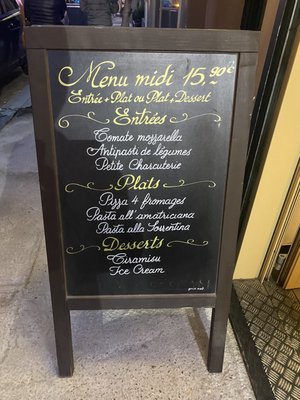 Menu midi 15,90€
Entrée + Plat ou Plat + Dessert
Entrées
Tomate mozzarella
Antipasti de légumes
Petite Charcuterie
Plats
Pizza 4 fromages
Pasta all'amatriciana
Pasta alla Sorrentina
Desserts
Tiramisu
Ice Cream
prix net